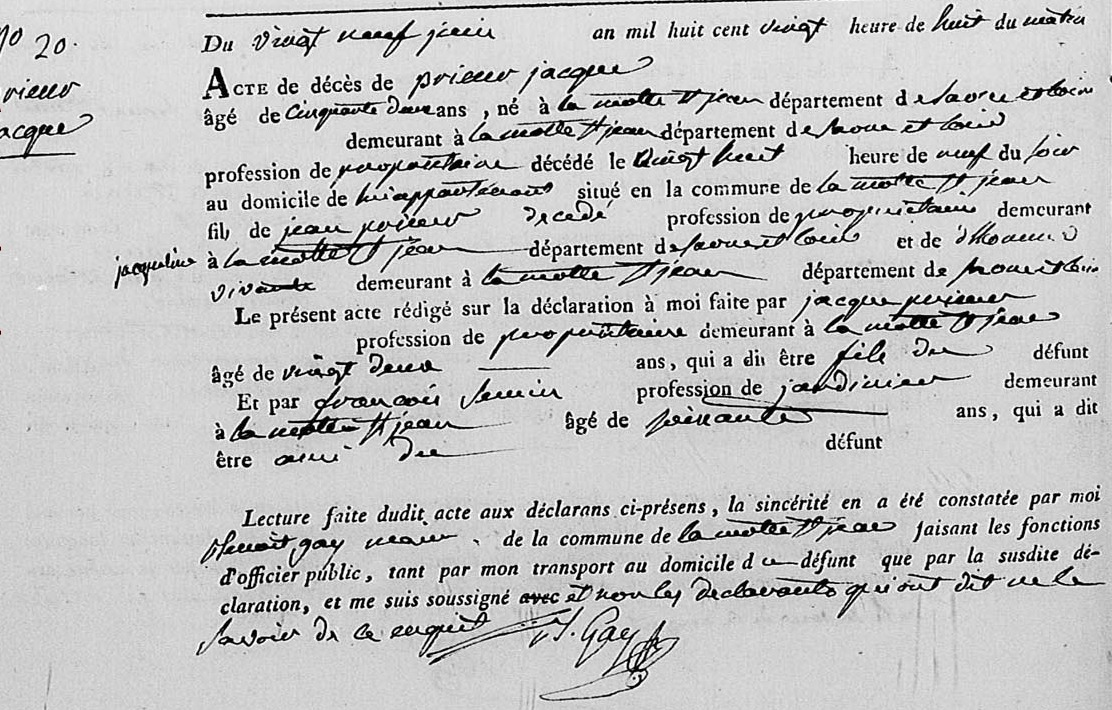 No 20.
prieur
jacque
Du vingt neuf juin an mil huit cent vingt heure de huit du matin
ACTE de décès de prieur jacque
âgé de Cinquante deux ans, né à la motte St jean département de Saone et loire
demeurant à la motte St jean département de Saone et loire
profession de propriétaire décédé le vingt huit heure de neuf du soir
au domicile de lui appartenant situé en la commune de la motte St jean
fils de jean prieur décédé profession de propriétaire demeurant
à la motte St jean département de Saone et loire et de
jacqueline
vivante demeurant à la motte St jean département de Saone et loire
Le présent acte rédigé sur la déclaration à moi faite par jacque prieur
profession de propriétaire demeurant à la motte St jean
âgé de vingt deux ans, qui a dit être fils du défunt
Et par françois profession de jardinier demeurant
à la motte St jean âgé de soixante ans, qui a dit
être ami du défunt
Lecture faite dudit acte aux déclarans ci-présens, la sincérité en a été constatée par moi
Benoit gay maire de la commune de la motte St jean faisant les fonctions
d'officier public, tant par mon transport au domicile du défunt que par la susdite dé-
claration, et me suis soussigné avec et non les declarants qui ont dit ne le
savoir de ce enquit Gay